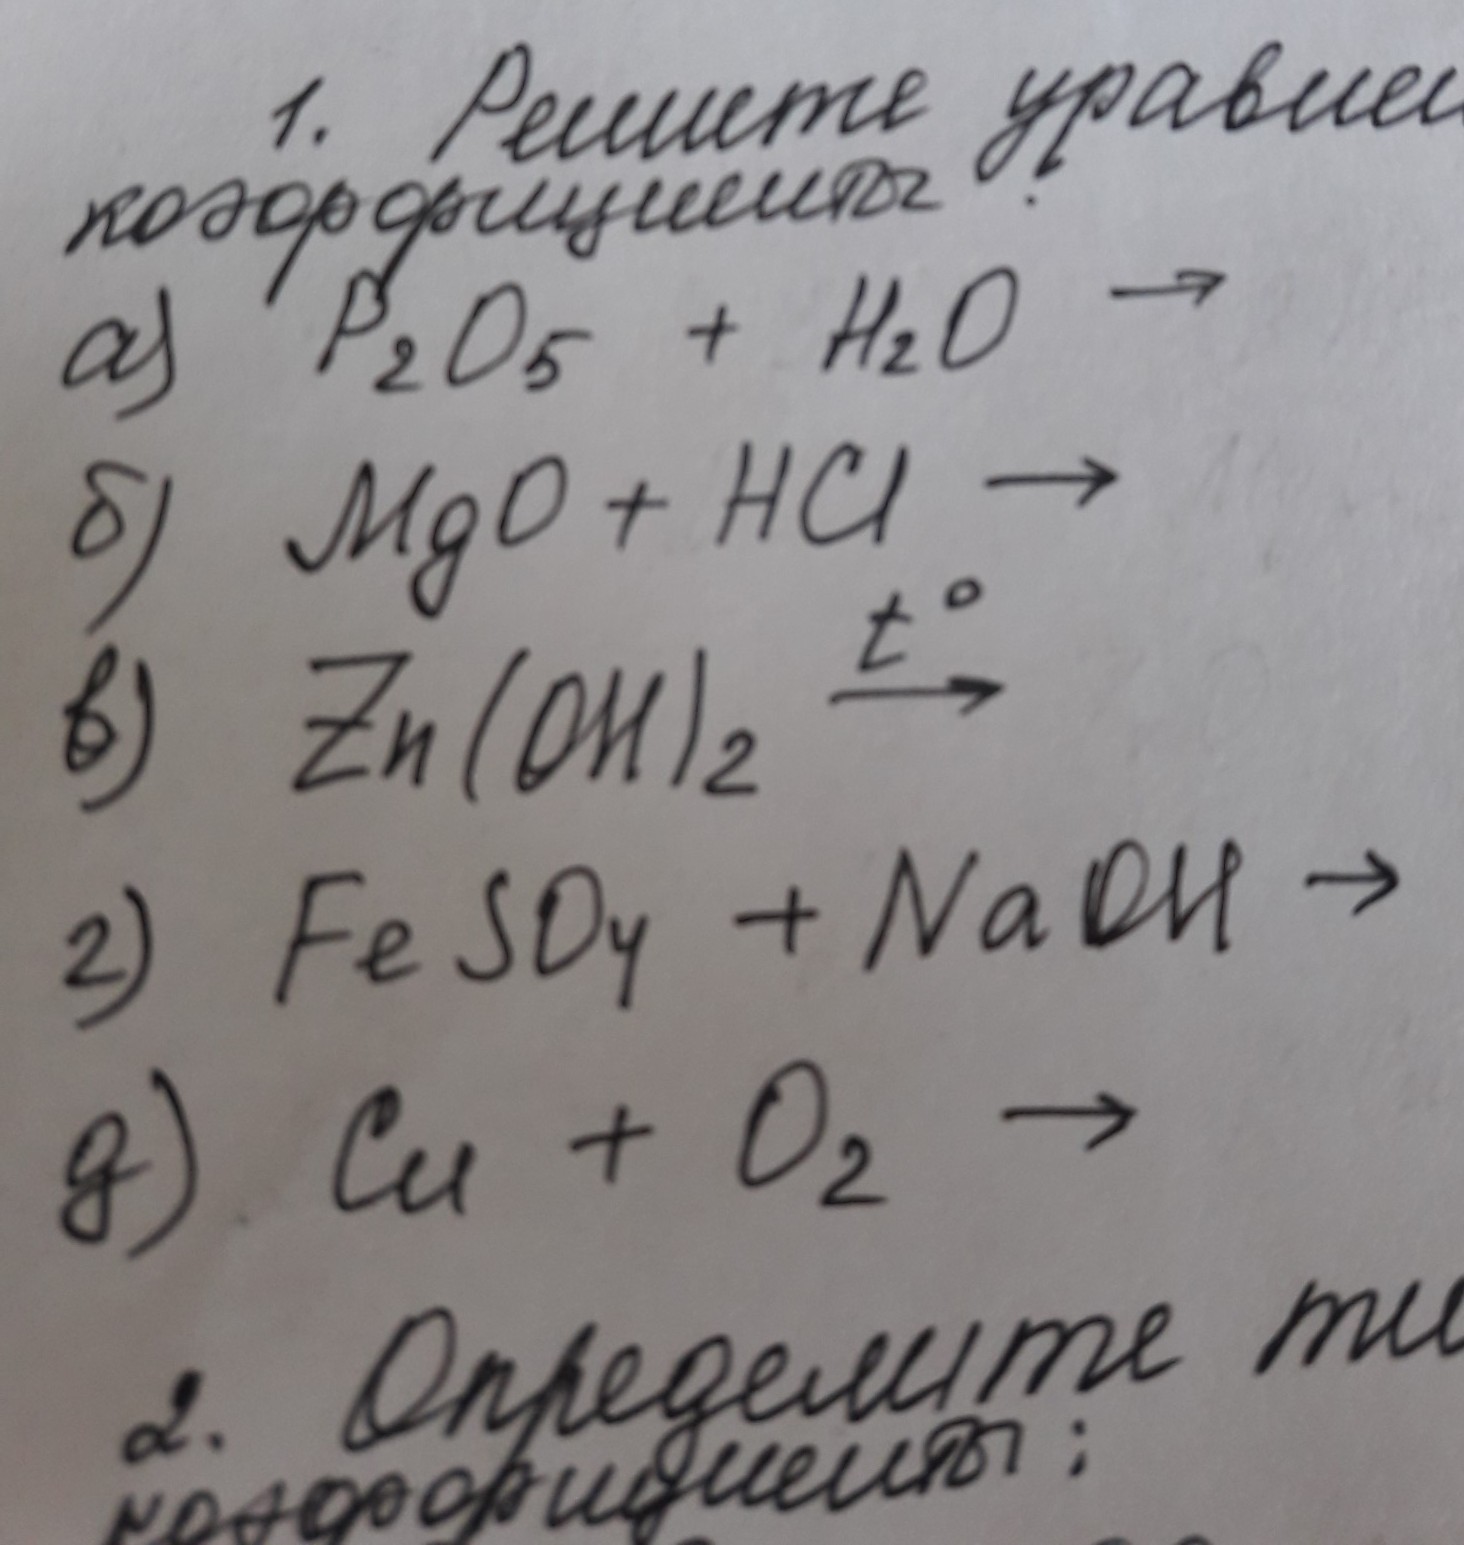 1. Решите уравне
коэффициенты:
а) P₂O₅ + H₂O →
б) MgO + HCl →
в) Zn(OH)₂ t° →
г) FeSO₄ + NaOH →
д) Cu + O₂ →
2. Определите ти
коэффициенты: